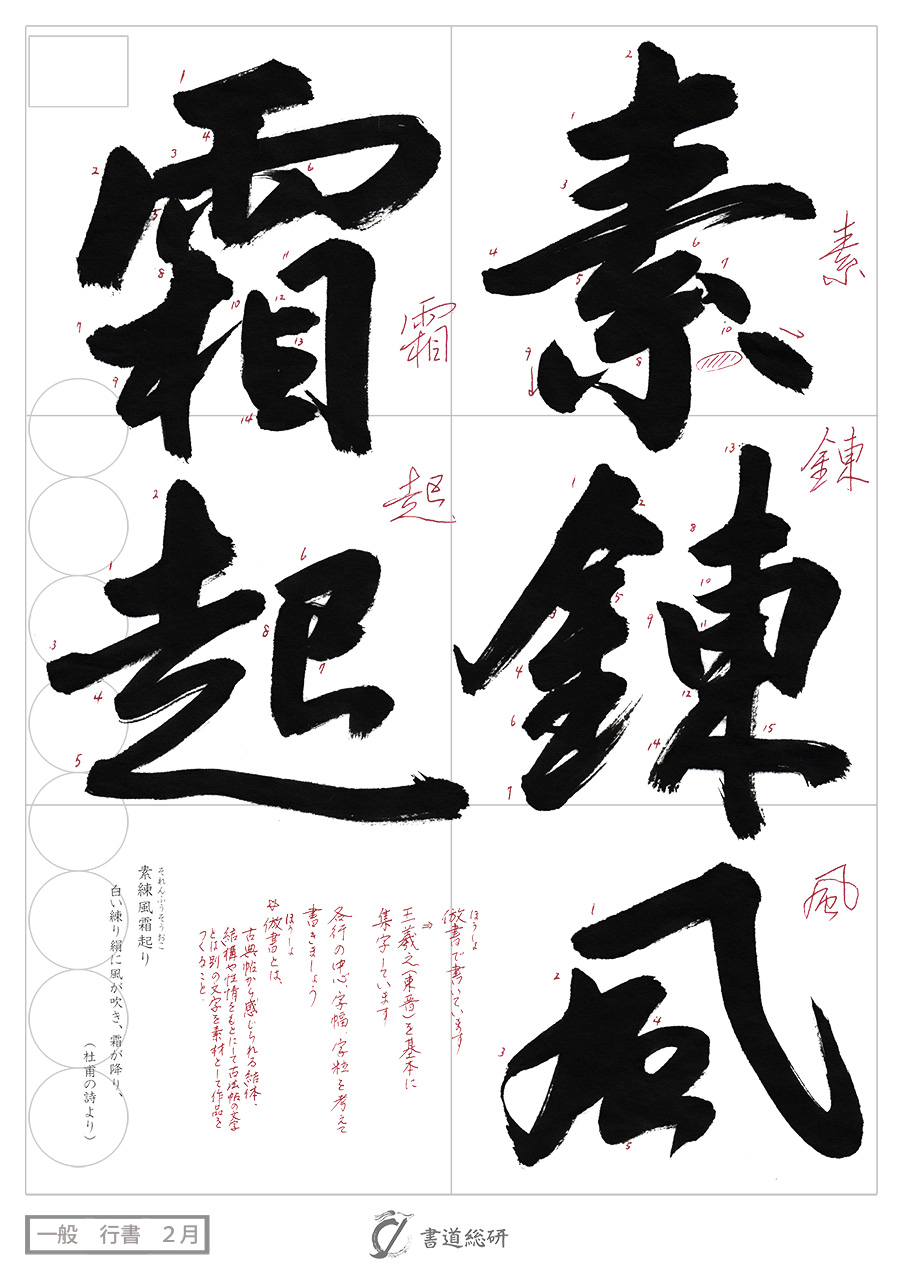 素鍊風
霜起
素
鍊
風
霜
起
ほうしょ
倣書で書いています
⇒
王羲之(東晋)を基本に
集字しています
各行の中心、字幅、字粒を考えて
書きましょう
ほうしょ
※倣書とは、
古典帖から感じられる結体、
結構や性情をもとにして古法帖の文字
とは別の文字を素材として作品を
つくること。
それんふうそうおこ
素練風霜起り
白い練り絹に風が吹き、霜が降り、
(杜甫の詩より)
一般 行書 2月
書道総研